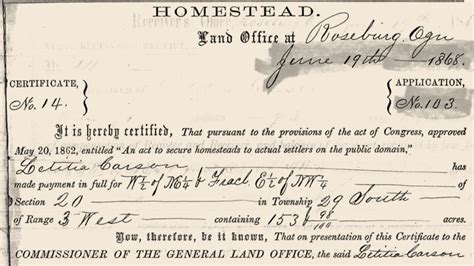 HOMESTEAD.
Land Office at Roseburg Ogn
June 19th 1868.
CERTIFICATE, APPLICATION,
No. 14. No. 103
It is hereby certified, That pursuant to the provisions of the act of Congress, approved
May 20, 1862, entitled "An act to secure homesteads to actual settlers on the public domain,"
Letitia Carson has
made payment in full for W½ of NE¼ & Fracl. E½ of NW¼ of
Section 20 in Township 29 South
of Range 3 West containing 153 98/100 acres.
Now, therefore, be it known, That on presentation of this Certificate to the
COMMISSIONER OF THE GENERAL LAND OFFICE, the said Letitia Carson